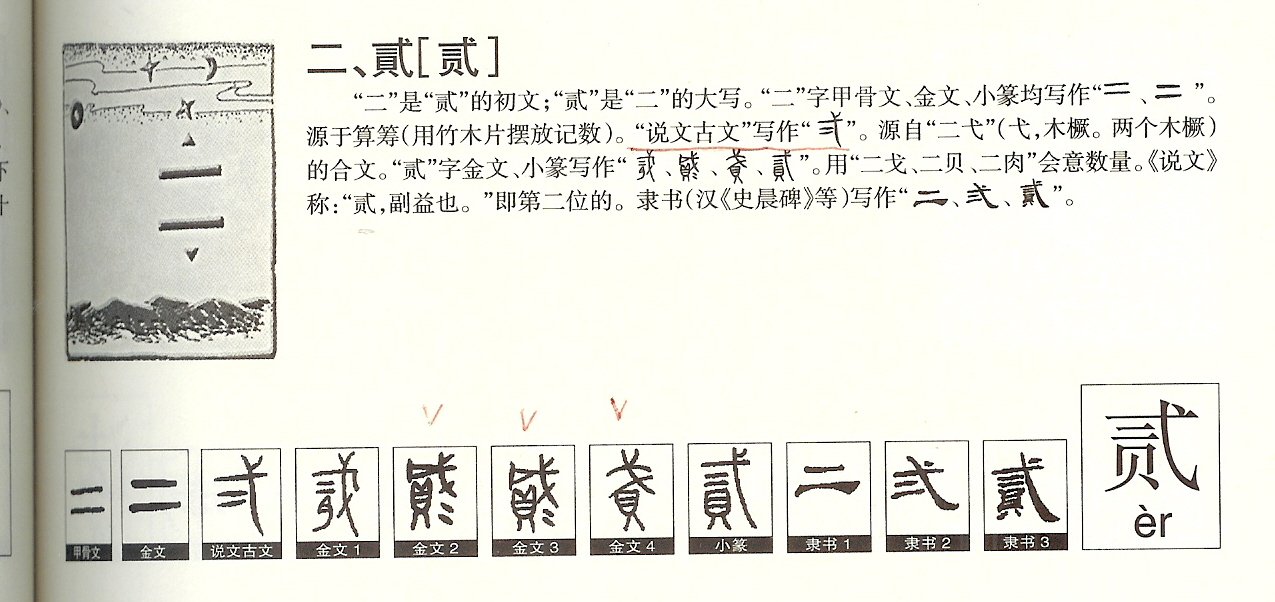 二、貳[贰]
“二”是“贰”的初文；“贰”是“二”的大写。“二”字甲骨文、金文、小篆均写作“二、二”。
源于算筹(用竹木片摆放记数)。“说文古文”写作“弍”。源自“二弋”(弋，木橛。两个木橛)
的合文。“贰”字金文、小篆写作“、、、貳”。用“二戈、二贝、二肉”会意数量。《说文》
称：“贰，副益也。”即第二位的。隶书(汉《史晨碑》等)写作“二、弍、貳”。
二 二 弍 貳 二 弍 貳 贰
甲骨文 金文 说文古文 金文1 金文2 金文3 金文4 小篆 隶书1 隶书2 隶书3 èr